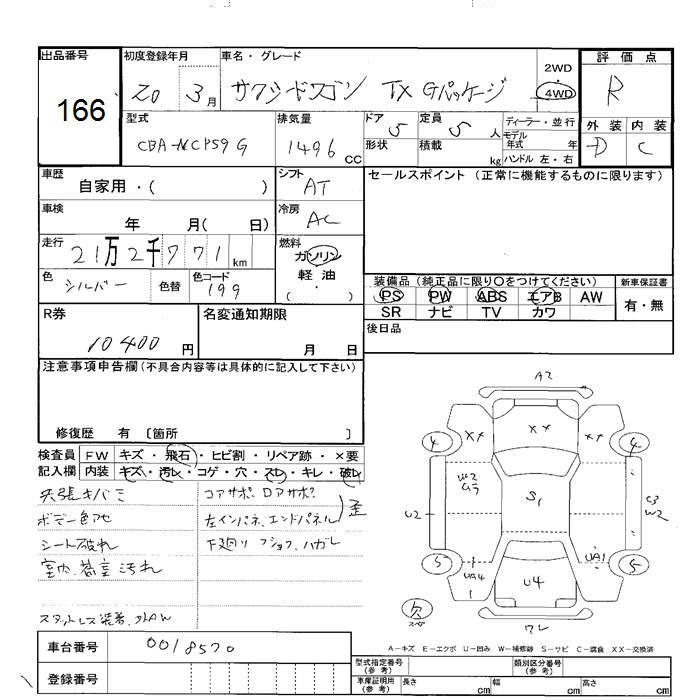 出品番号
166
初度登録年月
20 3月
車名・グレード
サクシードワゴン TX Gパッケージ
2WD
・
4WD
評価点
R
外装 内装
D C
型式
CBA-NCP59G
排気量
1496 CC
ドア
5
形状
定員
5 人
積載
kg
ディーラー・並行
モデル
年式 年
ハンドル 左・右
車歴
自家用・( )
シフト
AT
セールスポイント (正常に機能するものに限ります)
車検
年 月( 日)
冷房
AC
走行
21万2千771 km
燃料
ガソリン
軽油
( ・ )
色
シルバー
色替
色コード
199
装備品 (純正品に限り〇をつけてください)
PS PW ABS エアB AW
SR ナビ TV カワ
新車保証書
有・無
R券
10400 円
名変通知期限
月 日
後日品
注意事項申告欄 (不具合内容等は具体的に記入して下さい)
修復歴 有 〔箇所 〕
検査員
記入欄
FW キズ・飛石・ヒビ割・リペア跡・×要
内装 キズ・汚レ・コゲ・穴・スレ・キレ・破レ
天張キバミ
ボデー色アセ
シート破れ
室内、荷室汚れ
スタットレス装着、外AW
コアサポ、ロアサポ、
左インパネ、エンドパネル
歪
下廻り フショク、ハガレ
A2
XX
XX
XX
4
4
W2
U3
S1
U2
C3
W2
UA1
5
5
UA4
U4
欠
スペア
ワレ
A－キズ E－エクボ U－凹み W－補修跡 S－サビ C－腐食 XX－交換済
車台番号
0018570
登録番号
型式指定番号
(参考)
類別区分番号
(参考)
車庫証明用
(参考)
長さ cm
幅 cm
高さ cm